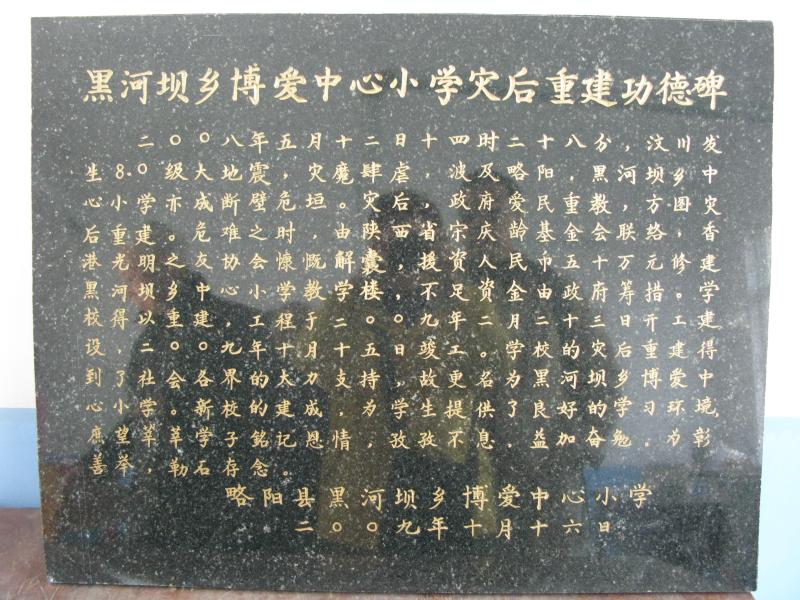 黑河坝乡博爱中心小学灾后重建功德碑
二〇〇八年五月十二日十四时二十八分,汶川发
生8.0级大地震,灾魔肆虐,波及略阳,黑河坝乡中
心小学亦成断壁危垣。灾后,政府爱民重教,方图灾
后重建。危难之时,由陕西省宋庆龄基金会联络,香
港光明之友协会慷慨解囊,援资人民币五十万元修建
黑河坝乡中心小学教学楼,不足资金由政府筹措。学
校得以重建,工程于二〇〇九年二月二十三日开工建
设,二〇〇九年十月十五日竣工。学校的灾后重建得
到了社会各界的大力支持,故更名为黑河坝乡博爱中
心小学。新校的建成,为学生提供了良好的学习环境,
庶望莘莘学子铭记恩情,孜孜不息,益加奋勉。为彰
善举,勒石存念。
略阳县黑河坝乡博爱中心小学
二〇〇九年十月十六日